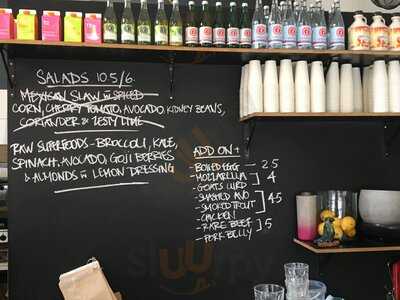 SALADS 10.5/6
MEXICAN SLAW w SPICED
CORN, CHERRY TOMATO, AVOCADO, KIDNEY BEANS,
CORIANDER & ZESTY LIME
RAW SUPERFOODS - BROCCOLI, KALE,
SPINACH, AVOCADO, GOJI BERRIES
& ALMONDS w LEMON DRESSING
ADD ON +
- BOILED EGG - 2.5
- MOZZARELLA
- GOATS CURD ] 4
- SMASHED AVO
- SMOKED TROUT
- CHICKEN ] 4.5
- RARE BEEF
- PORK BELLY ] 5